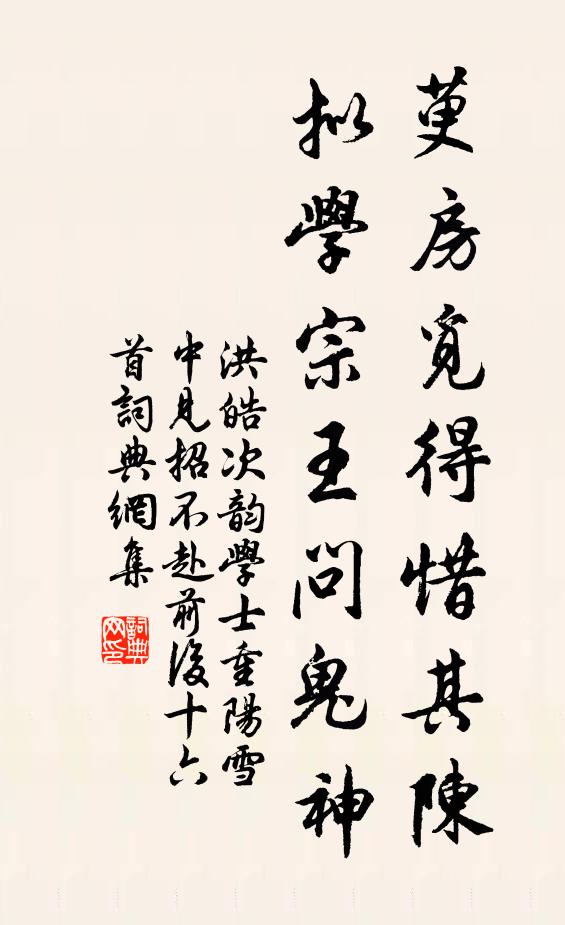 萸房覓得惜其陳
拟學宗王問鬼神
洪皓次韵學士重陽雪
中見招不赴前後十六
首詞典網集
詞典
网印